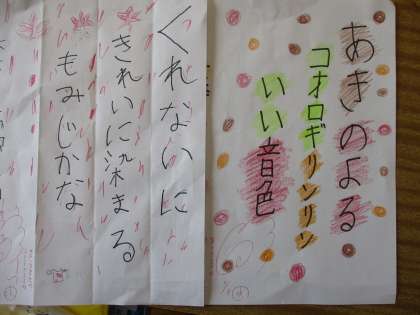 あきのよる
コオロギリンリン
いい音色
くれないに
きれいに染まる
もみじかな